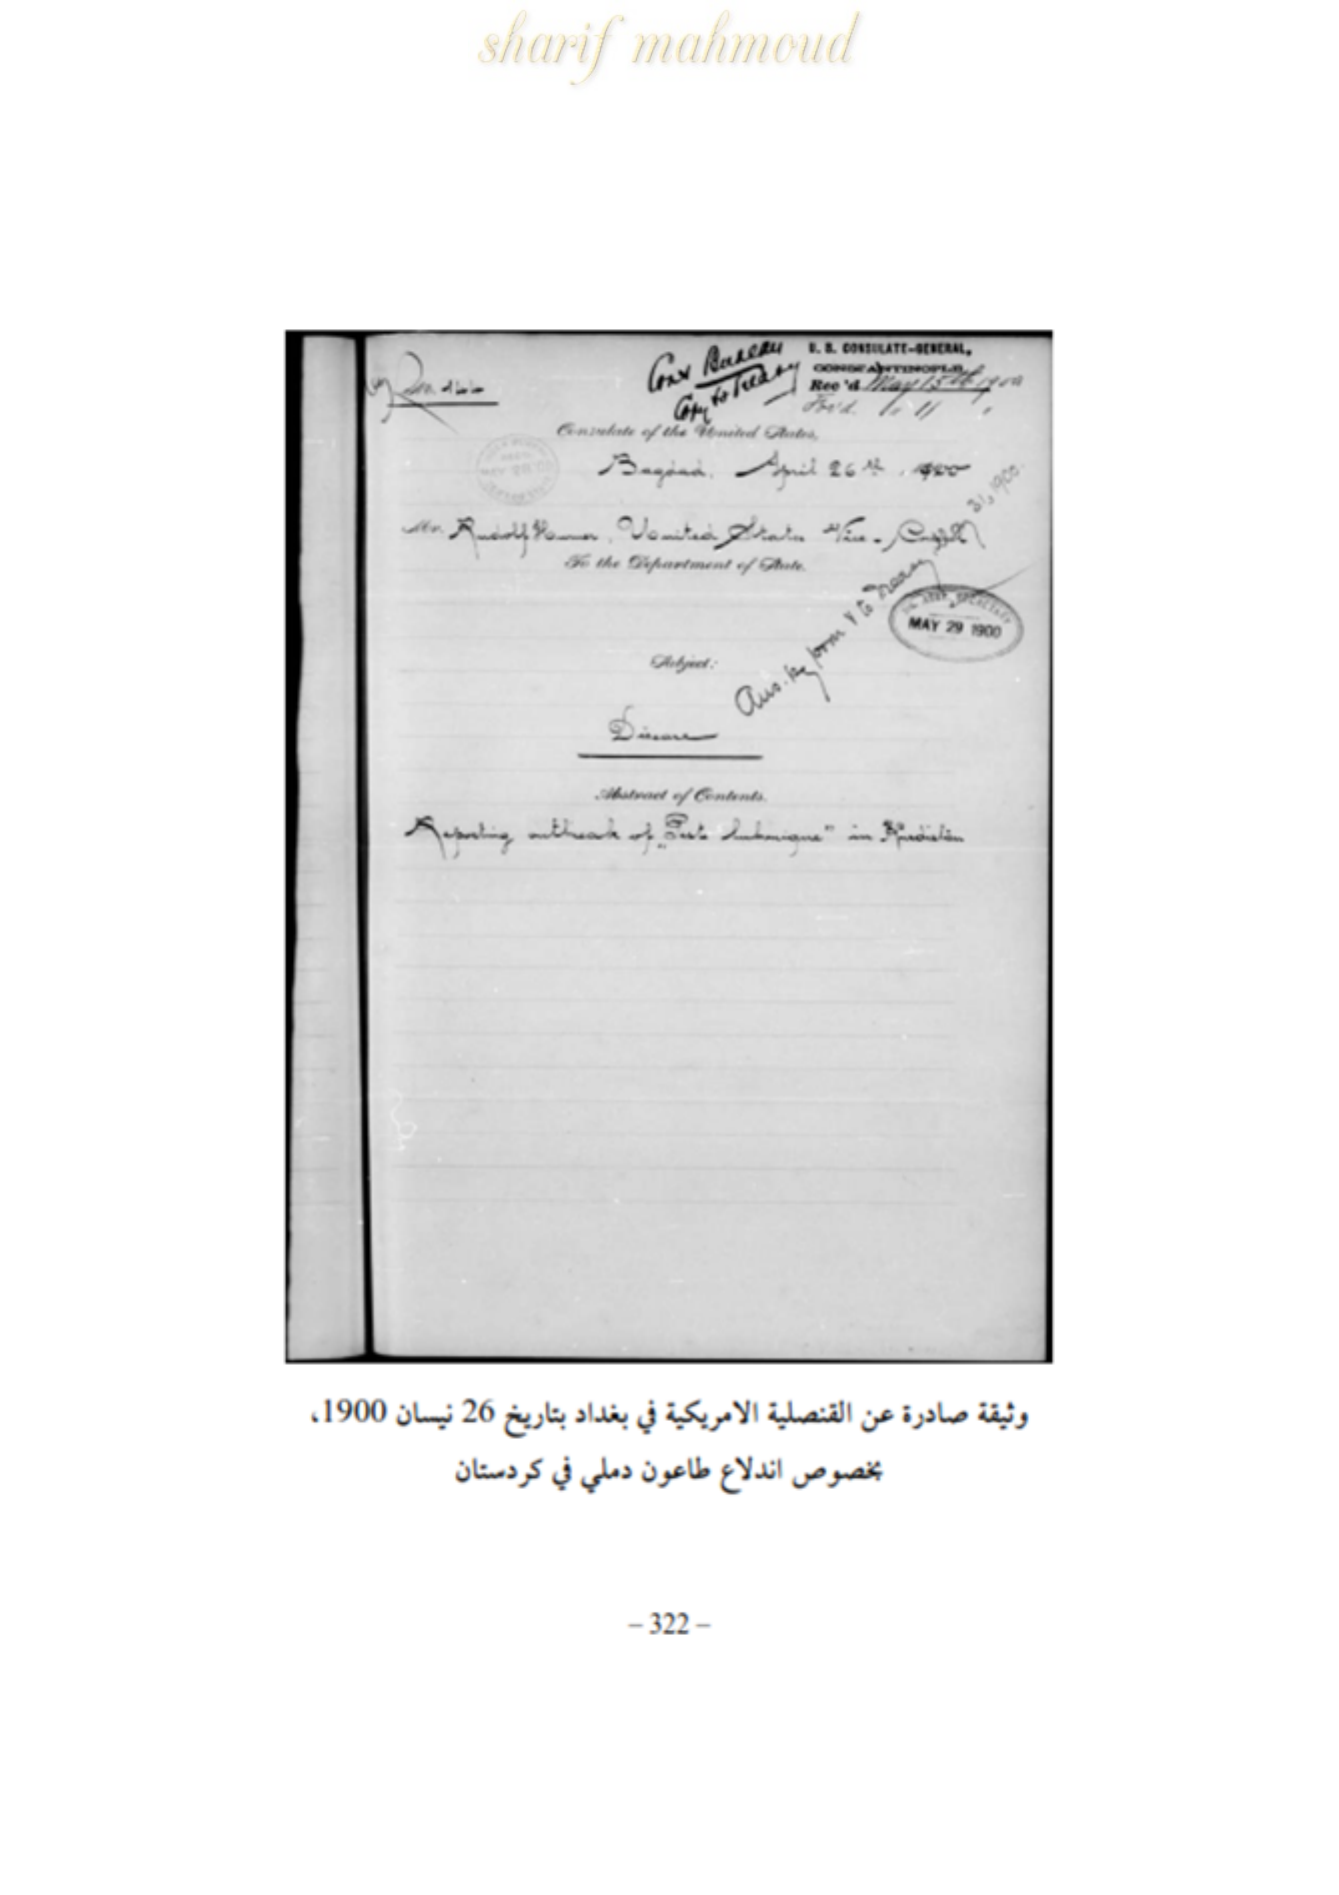 sharif mahmoud
Cons Bureau
Copy to Treasy
U. S. CONSULATE-GENERAL,
CONSTANTINOPLE.
Rec'd May 15th 1900
For'd " "
Consulate of the United States,
Bagdad, April 26th, 1900
Mr. Rudolf United States Vice-Consul
To the Department of State.
31, 1900
MAY 29 1900
Subject:
Disease
Abstract of Contents.
Reporting outbreak of „Peste bubonique" in Kurdistân
وثيقة صادرة عن القنصلية الامريكية في بغداد بتاريخ 26 نيسان 1900،
بخصوص اندلاع طاعون دملي في كردستان
– 322 –